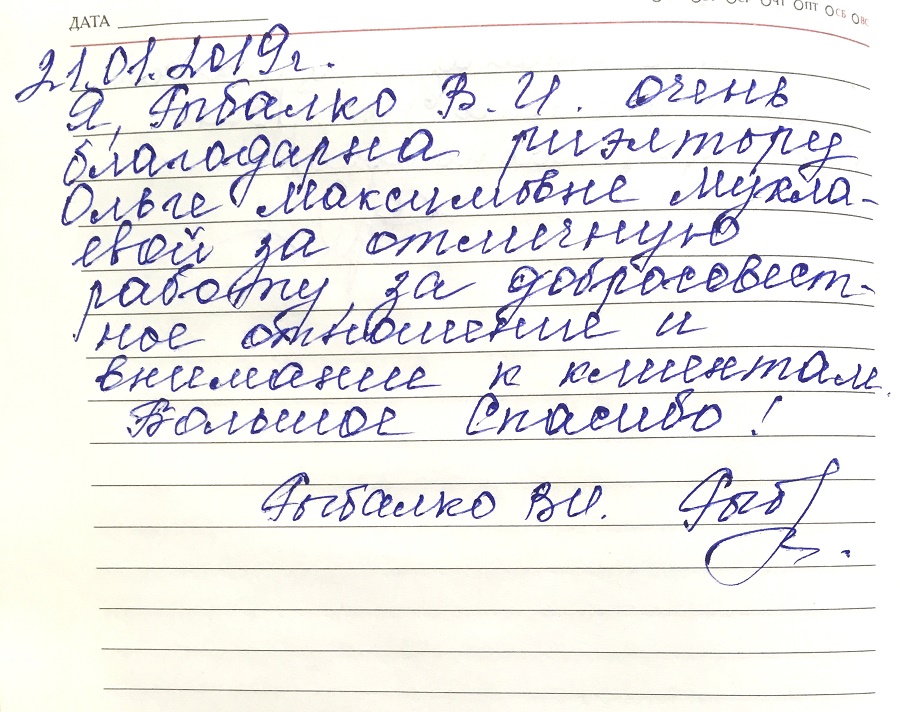 ДАТА
ПТ СБ ВС
21.01.2019г.
Я, Рыбалко В.И. очень
благодарна риэлтору
Ольге Максимовне Мукла-
евой за отличную
работу, за добросовест-
ное отношение и
внимание к клиентам.
Большое Спасибо!
Рыбалко ВИ. Рыб